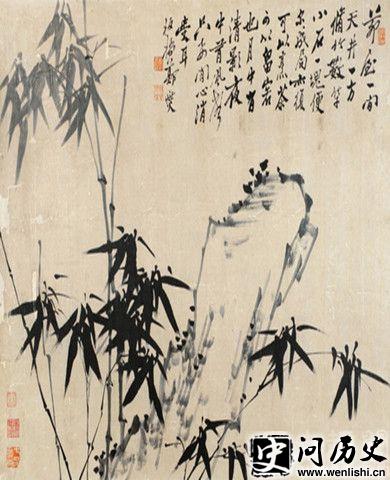 茅屋一間
天井一方
脩竹數竿
小石一塊便
尔成局亦復
可以烹茶
可以留客
也月中有
清影夜
中有風聲
只要閒心消
受耳
板橋鄭燮
史问历史
www.wenlishi.cn